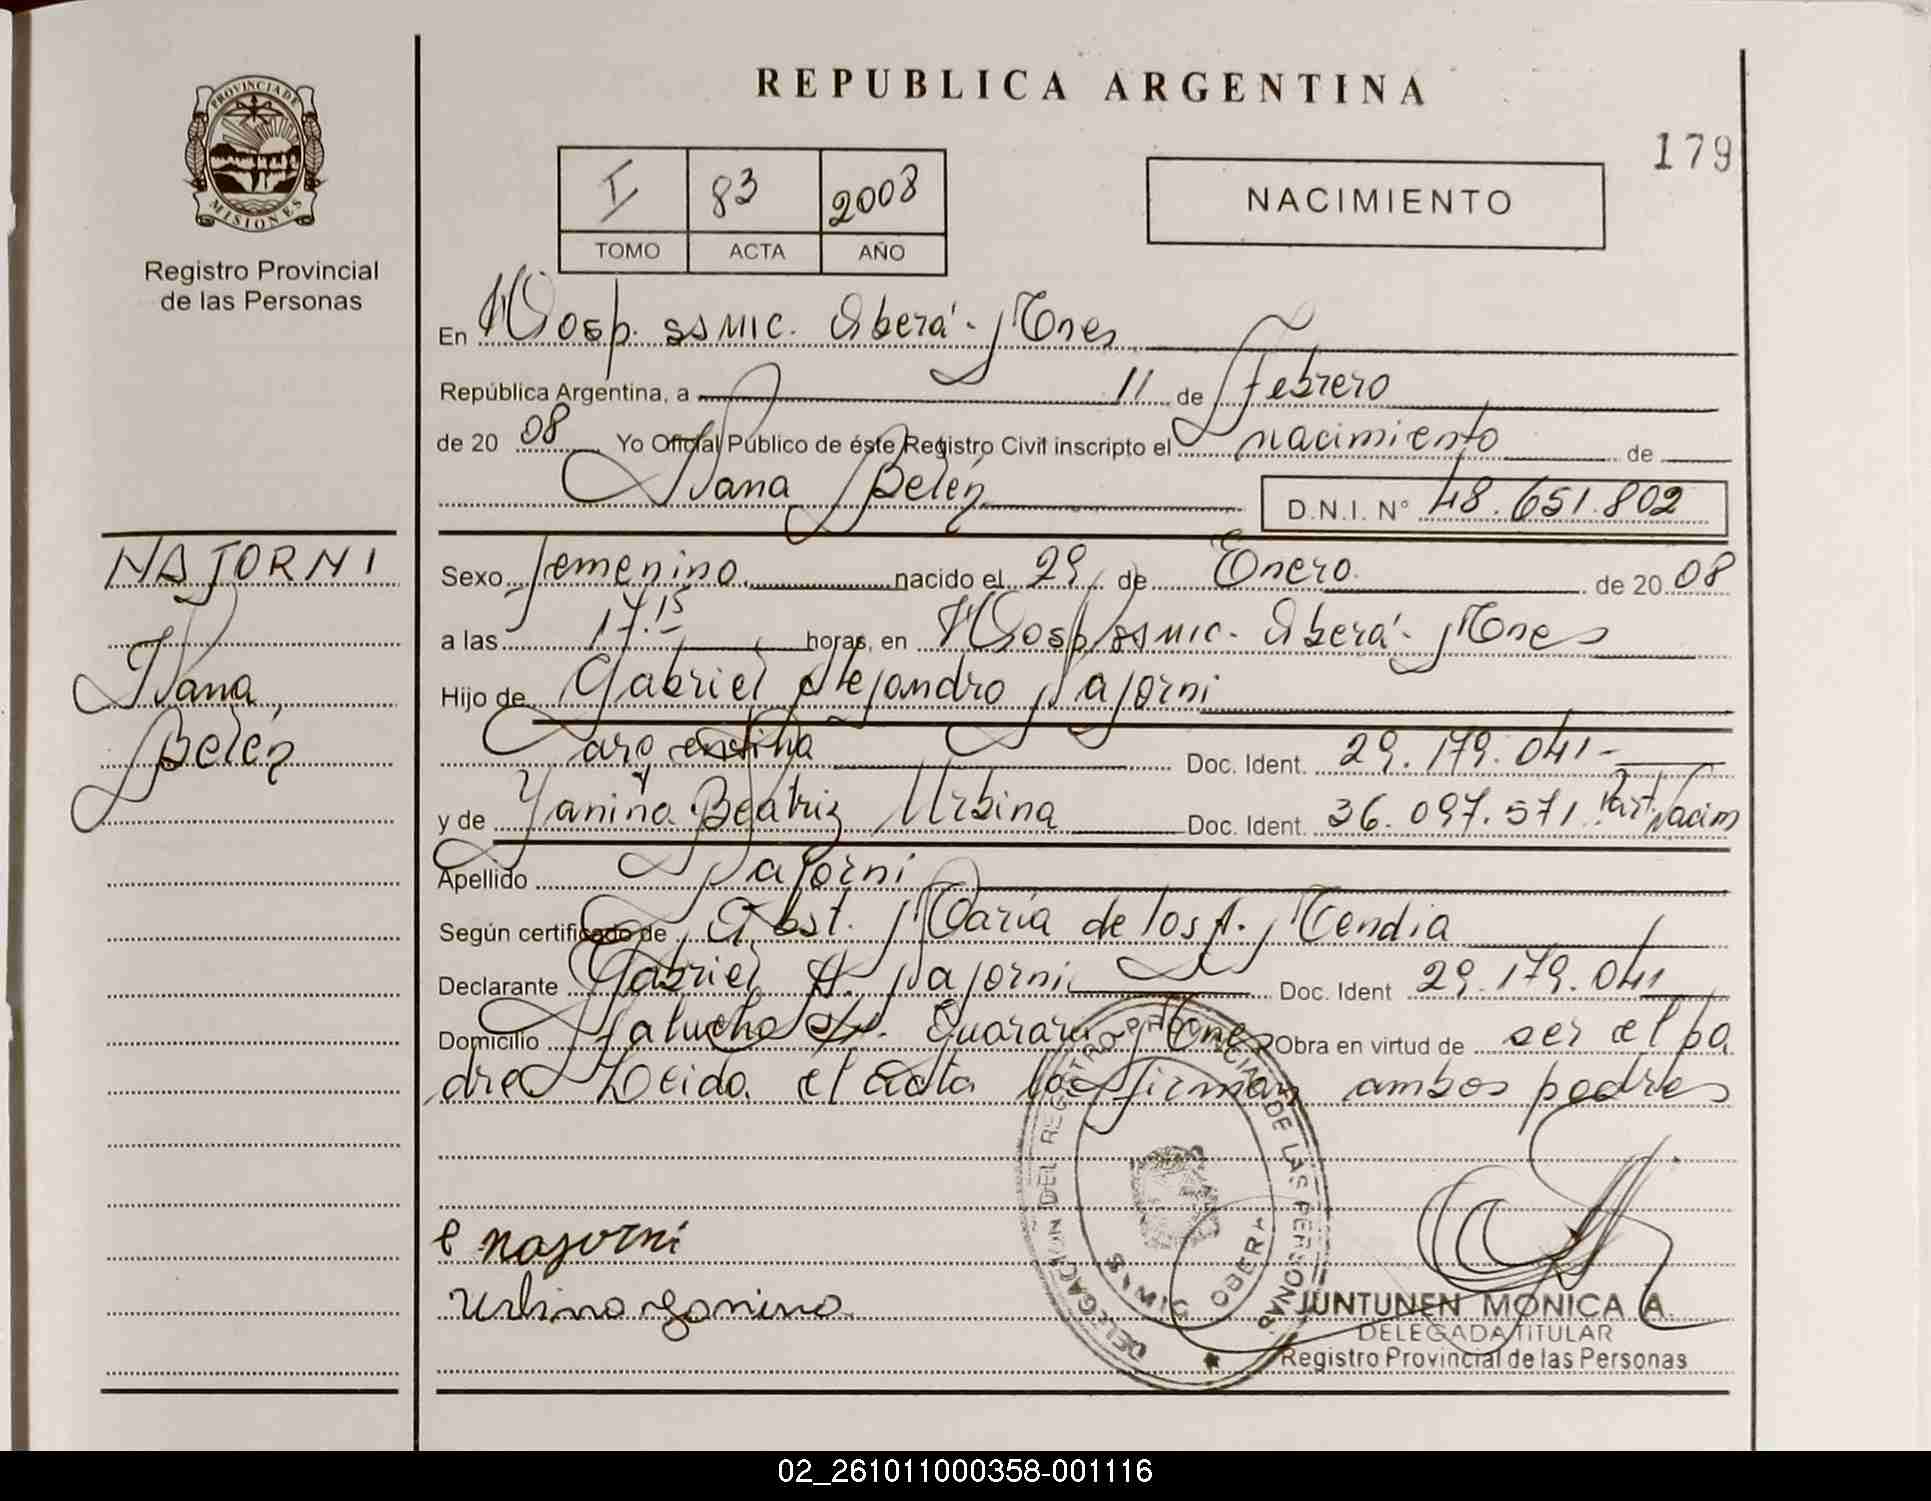 REPUBLICA ARGENTINA
179
PROVINCIA DE
MISIONES
Registro Provincial
de las Personas
I 83 2008
TOMO ACTA AÑO
NACIMIENTO
En Hosp. SSMIC. Oberá - Mnes
República Argentina, a 11 de Febrero
de 20 08 Yo Oficial Público de éste Registro Civil inscripto el nacimiento de
Nana Belén D.N.I. N° 48.651.802
NAJORNI
Nana
Belén
Sexo femenino nacido el 29 de Enero de 20 08
a las 17.15 horas, en Hosp. SSMIC. Oberá - Mnes
Hijo de Gabriel Alejandro Najorni
argentina Doc. Ident. 29.179.041-
y de Yanina Beatriz Urbina Doc. Ident. 36.097.571 Part. Nacim
Apellido Najorni
Según certificado de Obst. María de los A. Mendia
Declarante Gabriel A. Najorni Doc. Ident 29.179.041
Domicilio Guaraní Mnes Obra en virtud de ser el pa
dre Leida el acta la firman ambos padres
najorni
Urbina Yanina
DELEGACION DEL REGISTRO PROVINCIAL DE LAS PERSONAS
OBERA
JUNTUNEN MONICA A.
DELEGADA TITULAR
Registro Provincial de las Personas
02_261011000358-001116